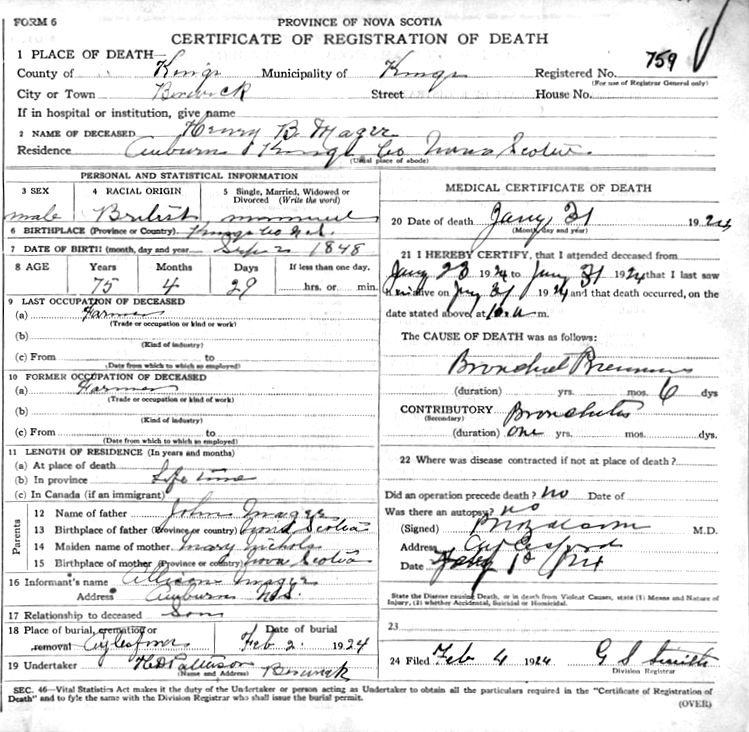 FORM 6
PROVINCE OF NOVA SCOTIA
CERTIFICATE OF REGISTRATION OF DEATH
759
1 PLACE OF DEATH—
County of Kings Municipality of Kings Registered No.
(For use of Registrar General only)
City or Town Berwick Street House No.
If in hospital or institution, give name
2 NAME OF DECEASED Henry B. Magee
Residence Auburn Kings Co Nova Scotia
(Usual place of abode)
PERSONAL AND STATISTICAL INFORMATION
3 SEX 4 RACIAL ORIGIN 5 Single, Married, Widowed or Divorced (Write the word)
male British married
6 BIRTHPLACE (Province or Country) Kings Co N.S.
7 DATE OF BIRTH (month, day and year) Sep 2 1848
8 AGE Years Months Days If less than one day.
75 4 29 hrs. or min.
9 LAST OCCUPATION OF DECEASED
(a) Farmer
(Trade or occupation or kind or work)
(b)
(Kind of industry)
(c) From to
(Date from which to which so employed)
10 FORMER OCCUPATION OF DECEASED
(a) Farmer
(Trade or occupation or kind of work)
(b)
(Kind of industry)
(c) From to
(Date from which to which so employed)
11 LENGTH OF RESIDENCE (In years and months)
(a) At place of death
(b) In province Life time
(c) In Canada (if an immigrant)
Parents
12 Name of father John Magee
13 Birthplace of father (Province or country) Nova Scotia
14 Maiden name of mother Mary Nichols
15 Birthplace of mother (Province or country) Nova Scotia
16 Informant's name Allison Magee
Address Auburn N.S.
17 Relationship to deceased Son
18 Place of burial, cremation or removal Aylesford Date of burial Feb 2 1924
19 Undertaker H D Patterson Berwick
(Name and Address)
MEDICAL CERTIFICATE OF DEATH
20 Date of death Jany 31 1924
(Month, day and year)
21 I HEREBY CERTIFY, that I attended deceased from
Jany 23 1924 to Jany 31 1924 that I last saw
h im alive on Jny 31 1924 and that death occurred, on the
date stated above, at m.
The CAUSE OF DEATH was as follows:
Bronchial Pneumonia
(duration) yrs. mos. 6 dys
CONTRIBUTORY Bronchitis
(Secondary)
(duration) one yrs. mos. dys.
22 Where was disease contracted if not at place of death?
Did an operation precede death? no Date of
Was there an autopsy? no
(Signed) M.D.
Address Aylesford
Date
State the Disease causing Death, or in death from Violent Causes, state (1) Means and Nature of
Injury, (2) whether Accidental, Suicidal or Homicidal.
23
24 Filed Feb 4 1924 G S Smith
Division Registrar
SEC. 46—Vital Statistics Act makes it the duty of the Undertaker or person acting as Undertaker to obtain all the particulars required in the "Certificate of Registration of
Death" and to fyle the same with the Division Registrar who shall issue the burial permit.
(OVER)